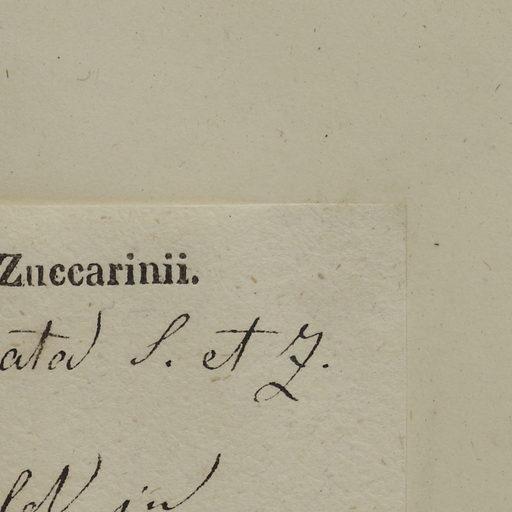 Zuccarinii.
ata S. et Z.
in